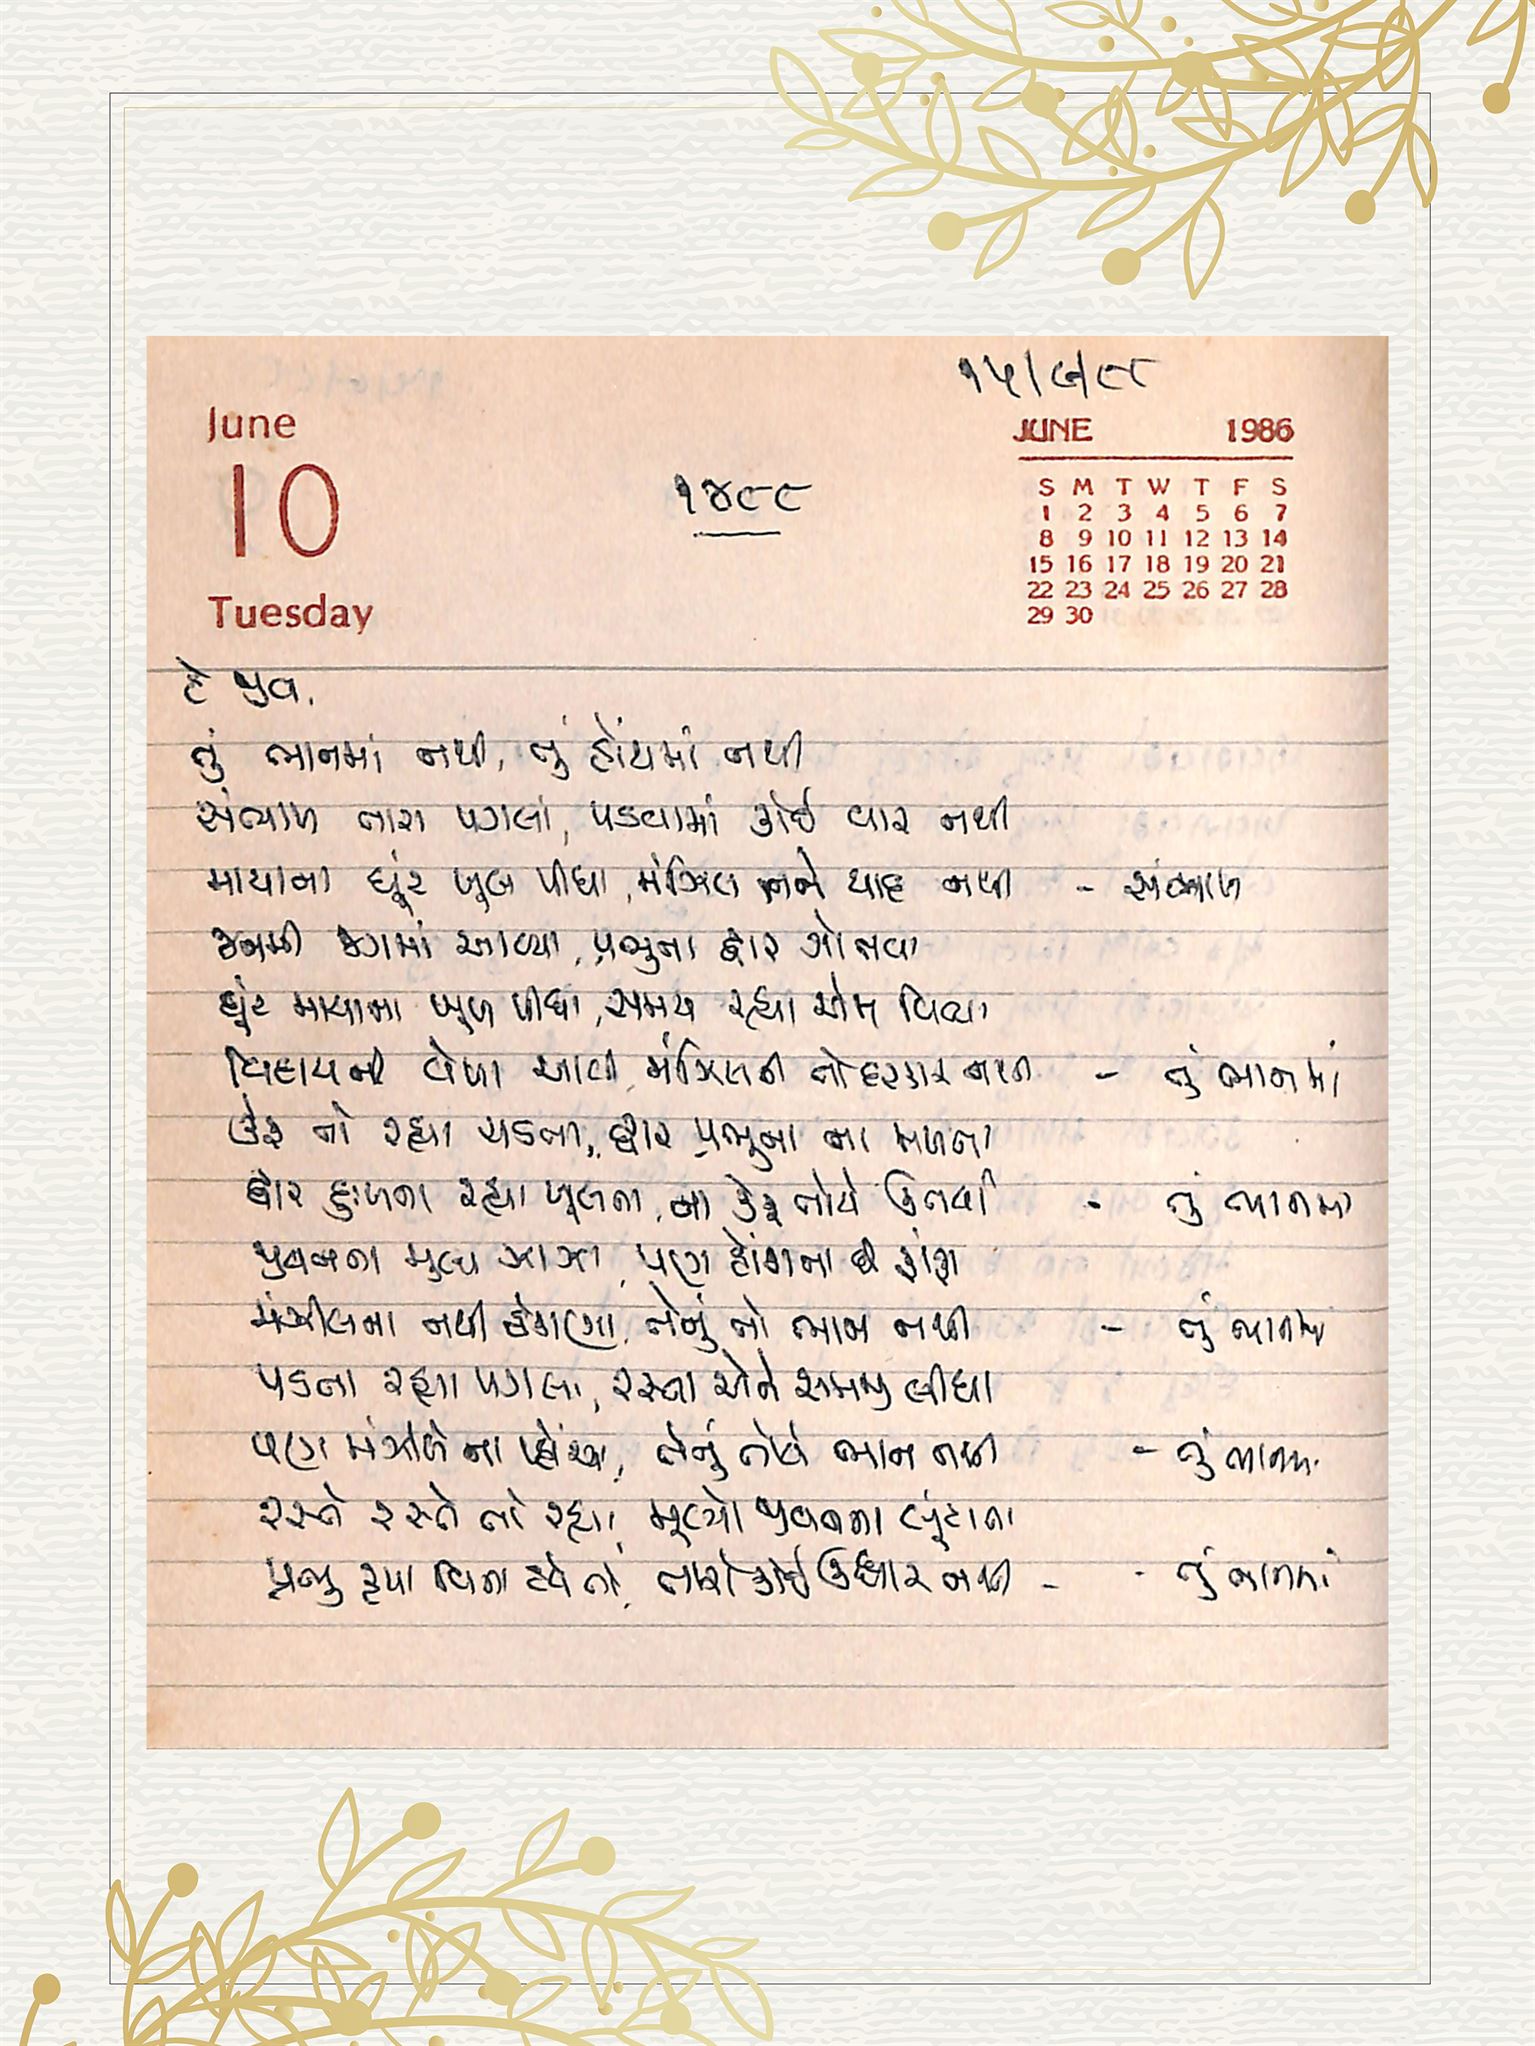 ૧૫/૯/૮૮
June
JUNE 1986
10
૧૪૮૮
S M T W T F S
1 2 3 4 5 6 7
8 9 10 11 12 13 14
15 16 17 18 19 20 21
22 23 24 25 26 27 28
29 30
Tuesday
હે જીવ.
તું ભાનમાં નથી, તું હોંશમાં નથી
સંભાળ તારા પગલાં, પડવામાં કોઈ વાર નથી
માયાના ઘૂંટ ખુબ પીધા, મંઝિલ તને યાદ નથી - સંભાળ
જનમી જગમાં આવ્યા, પ્રભુના દ્વાર ગોતવા
ઘૂંટ માયાના ખુબ પીધા, સમય રહ્યા એમ વિત્યા
વિદાયની વેળા આવી, મંઝિલની તો દરકાર નથી - તું ભાનમાં
કેફ તો રહ્યા ચડતા, દ્વાર પ્રભુના ના મળતા
દ્વાર દુઃખના રહ્યા ખૂલતા, ના કેફ તોયે ઉતર્યા - તું ભાનમાં
જીવનના મુલ્ય ઝાઝા, પણ હોંશના છે ફાંફા
મંઝીલના નથી ઠેકાણા, તેનું તો ભાન નથી - તું ભાનમાં
પડતા રહ્યા પગલા, રસ્તા એને સમજી લીધા
પણ મંઝીલે ના પ્હોંચ્યા, તેનું તોયે ભાન નથી - તું ભાનમાં
રસ્તે રસ્તે તો રહ્યા, મૂલ્યો જીવનના લૂંટાતા
પ્રભુ કૃપા વિના હવે તો, તારો કોઈ ઉધ્ધાર નથી - - તું ભાનમાં